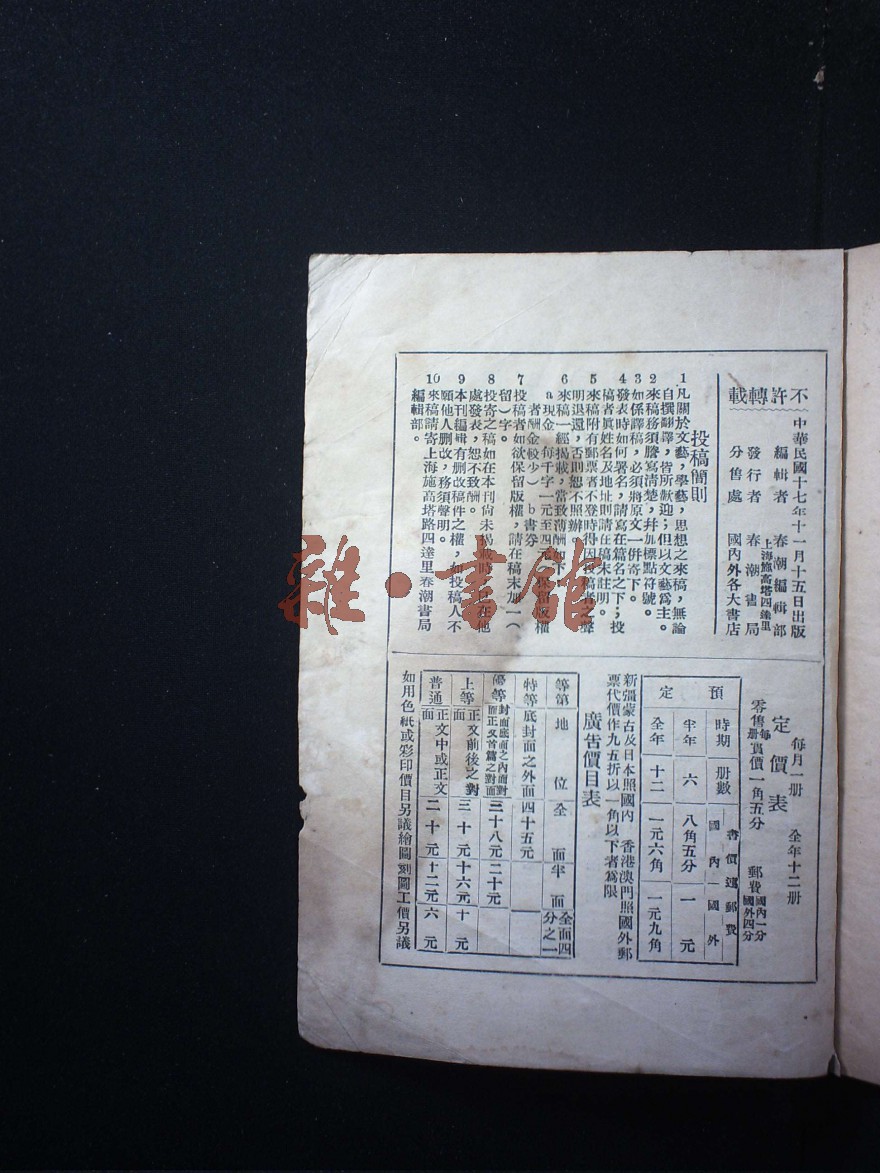 不許轉載
中華民國十七年十一月十五日出版
編輯者 春潮編輯部
上海施高塔四達里
發行者 春潮書局
分售處 國內外各大書店
投稿簡則
1 凡關於文藝，學藝，思想之來稿，無論
自撰翻譯，皆所歡迎；但以文藝爲主。
2 來稿務須謄寫清楚，幷加標點符號。
3 如係譯稿，必須將原文一併寄下。
4 發表時如何署名，請寫在篇名之下；投
稿者眞姓名及地址則請在稿末註明。
5 來稿附有郵票者不登時得因投稿者之聲
明退還，否則恕不照辦。
6 來稿一經揭載，當致薄酬如下
a 現金，每千字一元至四元（保留版權
者酬金較少）b 書券
7 投稿者如欲保留版權，請在稿末加一（
留）字。
8 投寄之稿如在本刊尙未揭載時已在他
處發表，恕不致酬。
9 本刊編輯有刪改稿件之權，如投稿人不
願他人刪改，務須聲明。
10 來稿請寄上海施高塔路四達里春潮書局
編輯部。
每月一册 全年十二册
定價表
零售每册實價一角五分 郵費國內一分國外四分
預定
時期 册數 書價連郵費
國內 國外
半年 六 八角五分 一元
全年 十二 一元六角 一元九角
新彊蒙古及日本照國內 香港澳門照國外郵
票代價作九五折以一角以下者爲限
廣吿價目表
等第 地位 全面 半面 全面四分之一
特等 底封面之外面 四十五元
優等 封面底面之內面對面正文首篇之對面 三十八元 二十元
上等 正文前後之對面 三十元 十六元 十元
普通 正文中或正文面 二十元 十二元 六元
如用色紙或彩印價目另議繪圖刻圖工價另議
雜·書館